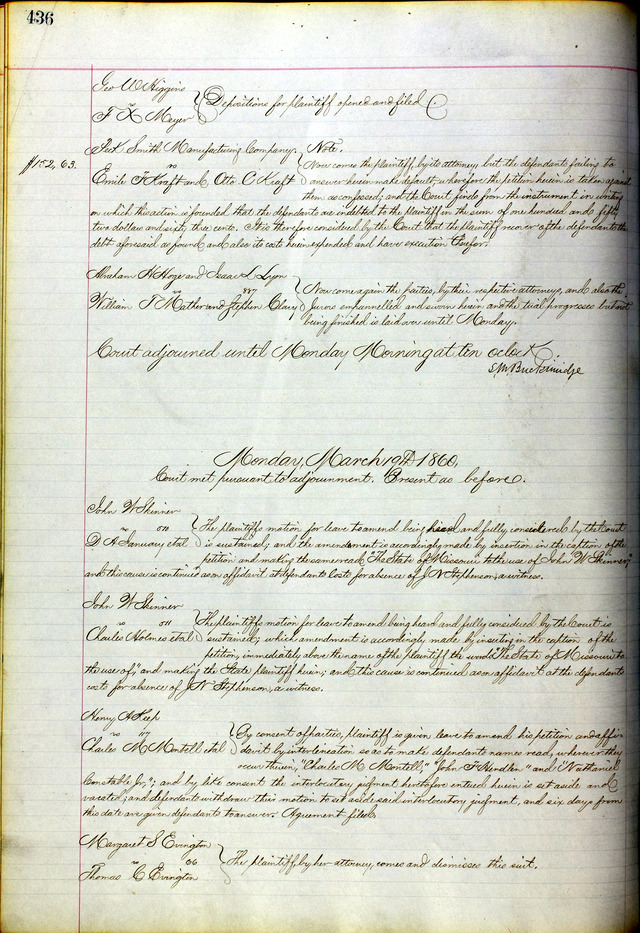 436
Geo W Higgins
vs
F X Meyer } Depositions for plaintiff opened and filed
Smith Manufacturing Company } Note.
$152,63. vs Now comes the plaintiff, by its attorney but the defendants failing to
Emile F Kraft and Otto C Kraft answer herein make default, wherefore the petition herein is taken against
them as confessed; and the Court finds from the instrument in writing
on which this action is founded that the defendants are indebted to the plaintiff in the sum of one hundred and fifty
two dollars and sixty three cents. It is therefore considered by the Court that the plaintiff recover of the defendants the
debt aforesaid as found and also its costs herein expended and have execution therefor.
Abraham H Hoge and Isaac L Lyon
vs 887 } Now come again the parties, by their respective attorneys, and also the
William T Mather and Stephen Clary Jurors empannelled and sworn herein and the trial progresses but not
being finished is laid over until Monday.
Court adjourned until Monday Morning at ten oclock
Monday, March 19th 1860.
Court met pursuant to adjournment. Present as before.
John W Skinner
vs } The plaintiffs motion for leave to amend being heard and fully considered by the Court
D A January etal is sustained; and the amendment is accordingly made by insertion in the caption of the
petition and making the same read "The State of Missouri to the use of John W Skinner;"
and this cause is continued as on affidavit at defendants costs for absence of J N Stephenson, a witness.
John W Skinner
vs 511 } The plaintiffs motion for leave to amend being heard and fully considered by the Court is
Charles Holmes etal sustained; which amendment is accordingly made by inserting in the caption of the
petition, immediately above the name of the plaintiff the words "The State of Missouri to
the use of," and making the State plaintiff herein; and this cause is continued as on affidavit at the defendants
costs for absence of J N Stephenson, a witness.
Henry A Keep
vs 117 } By consent of parties, plaintiff is given leave to amend his petition and affi-
Charles M Montell etal davit by interlineation so as to make defendants names read, wherever they
occur therein, "Charles M Montell," "John F Hendlen" and "Nathaniel
Constable Jr,"; and by like consent the interlocutory judgment heretofore entered herein is set aside and
vacated; and defendants withdraw this motion to set aside said interlocutory judgment, and six days from
this date are given defendants to answer. Agreement filed.
Margaret S Evington
vs 96 } The plaintiff by her attorney, comes and dismisses this suit.
Thomas C Evington